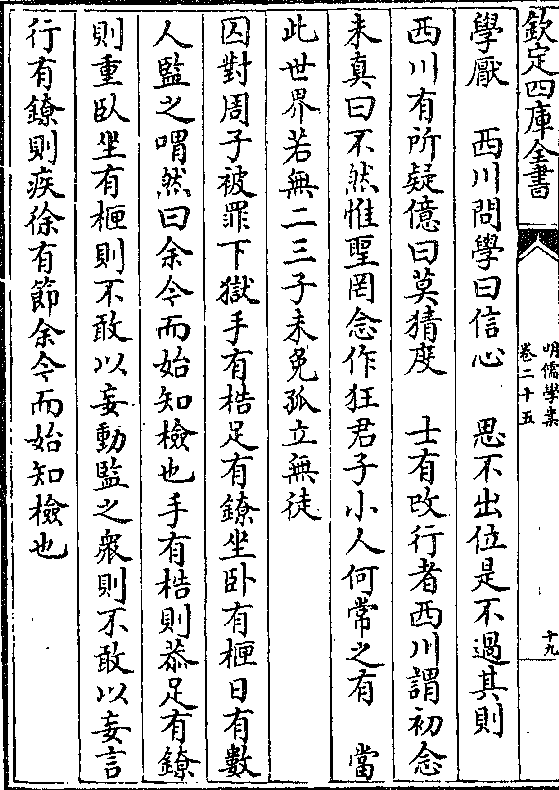 欽定四庫全書
明儒學案
卷二十五
十九
學厭　西川問學曰信心　思不出位是不過其則
西川有所疑億曰莫猜度　士有改行者西川謂初念
未真曰不然惟聖罔念作狂君子小人何常之有　當
此世界若無二三子未免孤立無徒
囚對周子被罪下獄手有梏足有鐐坐卧有匣日有數
人監之喟然曰余今而始知檢也手有梏則恭足有鐐
則重臥坐有匣則不敢以妄動監之衆則不敢以妄言
行有鐐則疾徐有節余今而始知檢也